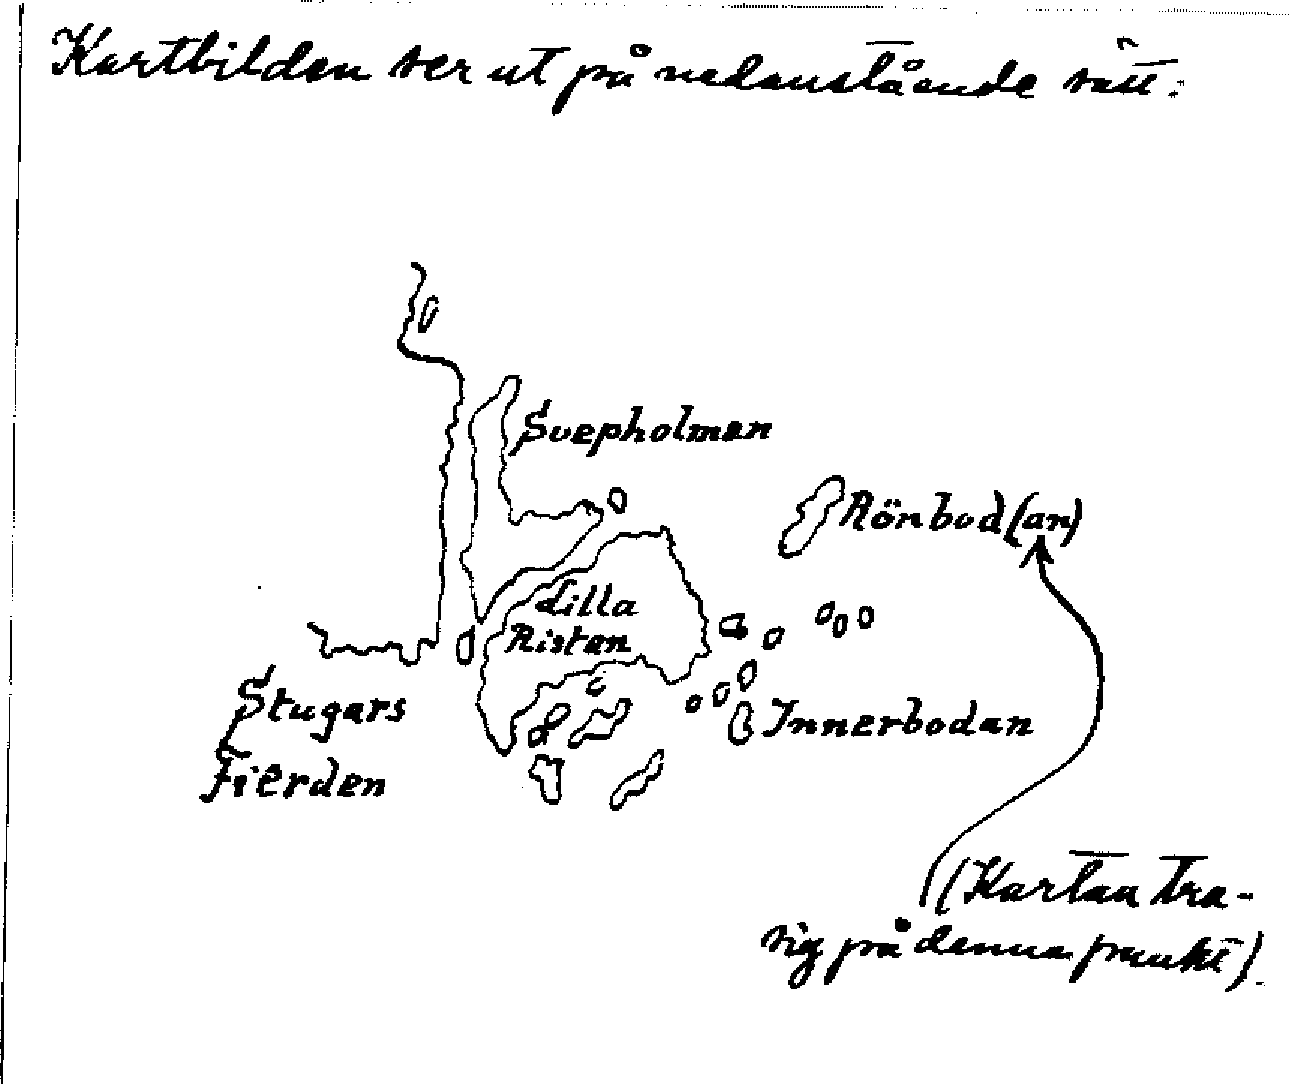 Kartbilden ser ut på nedanstående sätt:
Svepholmen
Rönbod(an)
Lilla
Ristan
Stugars
Fierden
Innerbodan
(Kartan tra-
sig på denna punkt).